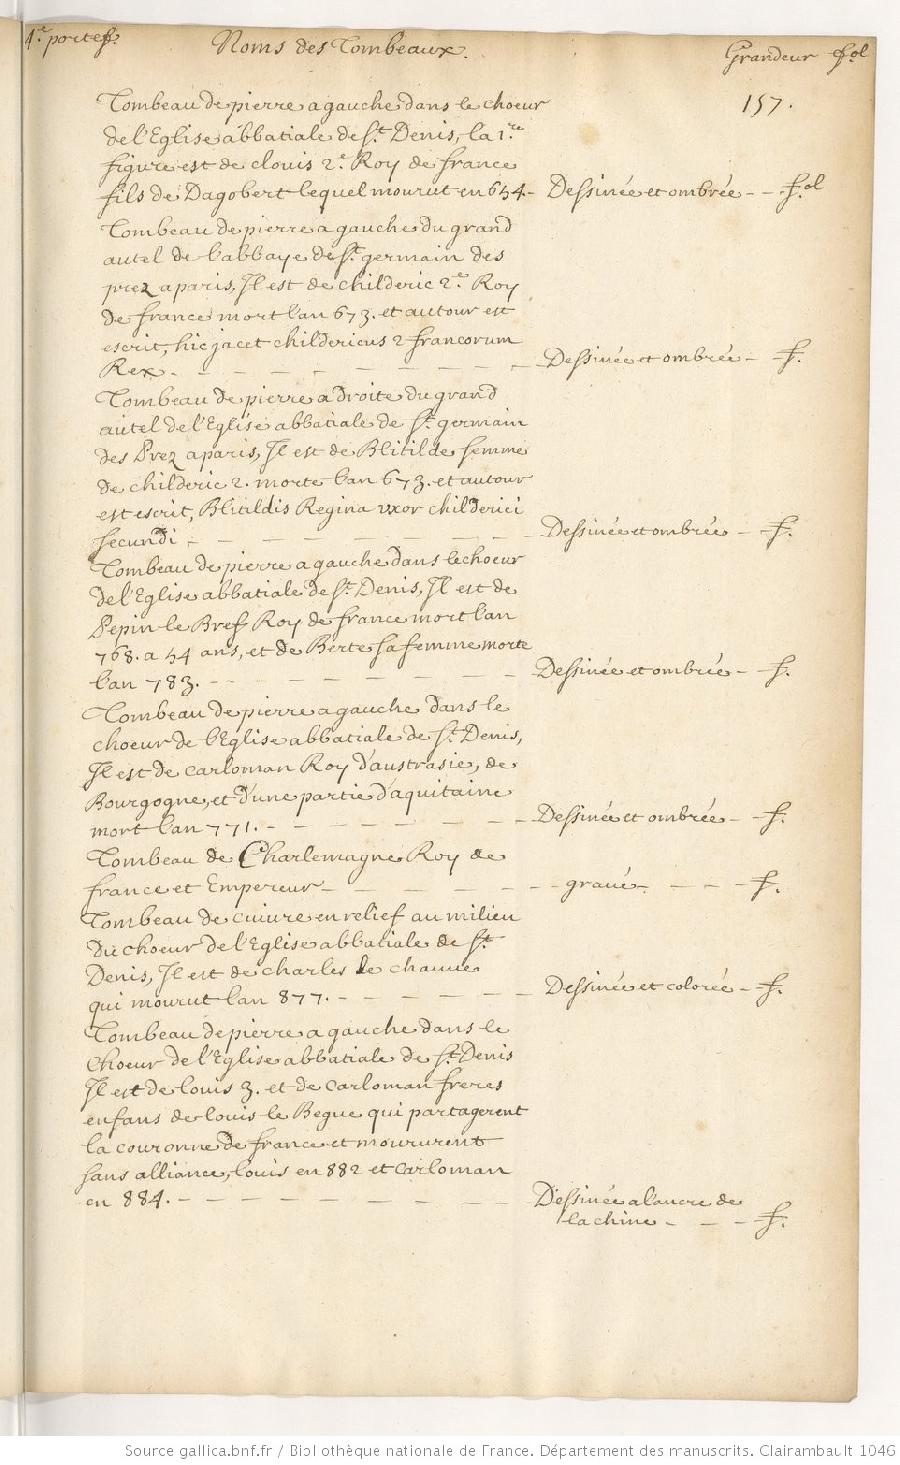 1.e portef. Noms des Tombeaux. Grandeur fol
157.
Tombeau de pierre a gauche dans le choeur
de l'Eglise abbatiale de St. Denis, la 1.re
figure est de clouis 2.e Roy de france
fils de Dagobert lequel mourut en 654 - Dessinée et ombrée - - fol
Tombeau de pierre a gauche du grand
autel de l'abbaye de St. germain des
prez a paris, Il est de childeric 2.e Roy
de france mort l'an 673. et autour est
escrit, hic jacet childericus 2 francorum
Rex. - - - - - - - - Dessinée et ombrée - f.
Tombeau de pierre a droite du grand
autel de l'Eglise abbatiale de St. germain
des Prez a paris, Il est de Blitilde femme
de childeric 2. morte l'an 673. et autour
est escrit, Blitildis Regina uxor childerici
secundi - - - - - - - - Dessinée et ombrée - f.
Tombeau de pierre a gauche dans le choeur
de l'Eglise abbatiale de St. Denis, Il est de
Pepin le Bref Roy de france mort l'an
768. a 54 ans, et de Berte sa femme morte
l'an 783. - - - - - - - Dessinée et ombrée - f.
Tombeau de pierre a gauche dans le
choeur de l'Eglise abbatiale de St. Denis,
Il est de carloman Roy d'austrasie, de
Bourgogne, et d'une partie d'aquitaine
mort l'an 771. - - - - - - - Dessinée et ombrée - f.
Tombeau de Charlemagne Roy de
france et Empereur - - - - - - - graué - - - - f.
Tombeau de cuiure en relief au milieu
du choeur de l'Eglise abbatiale de St.
Denis, Il est de charles le chauue
qui mourut l'an 877. - - - - - Dessinée et colorée - f.
Tombeau de pierre a gauche dans le
Choeur de l'Eglise abbatiale de St. Denis
Il est de louis 3. et de carloman freres
enfans de louis le Begue qui partagerent
la couronne de france et moururent
sans alliance, louis en 882 et carloman
en 884. - - - - - - - - Dessinée a l'ancre de
la chine - - - f.
Source gallica.bnf.fr / Bibliothèque nationale de France. Département des manuscrits. Clairambault 1046